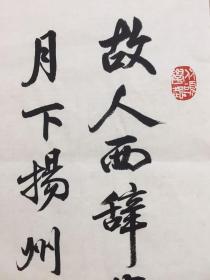 故人西辞
月下揚州